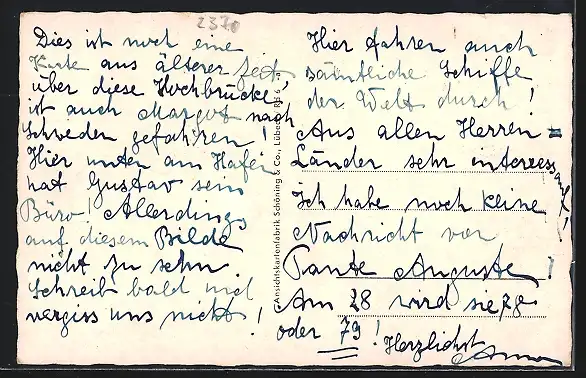 2370
Dies ist noch eine
Karte aus älterer Zeit,
über diese Hochbrücke
ist auch Margot nach
Schweden gefahren!
Hier unten am Hafen
hat Gustav sein
Büro! Allerdings
auf diesem Bilde
nicht zu sehn.
Schreib bald und
vergiss uns nicht!
Ansichtskartenfabrik Schöning & Co., Lübeck
Hier fahren auch
sämtliche Schiffe
der Welt durch!
Aus allen Herren=
Länder sehr interessant!
Ich habe noch keine
Nachricht von
Tante Auguste!
Am 28 wird sie 78
oder 79!
Herzlichst